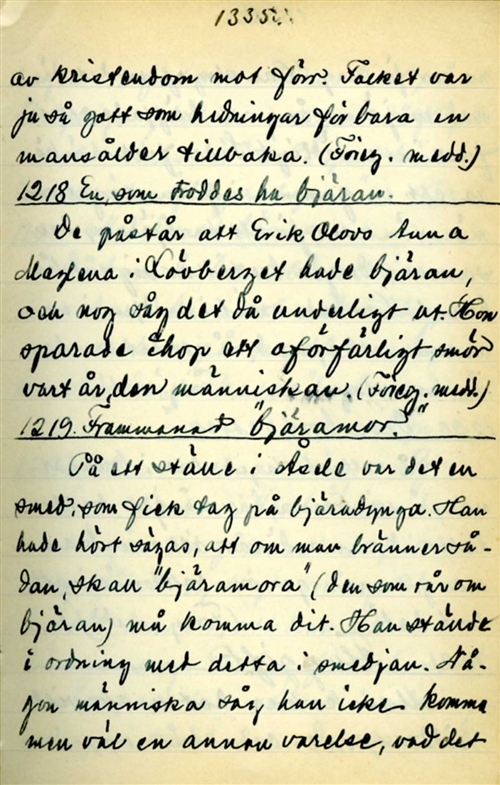 1335.
av kristendom mot förr. Folket var
ju så gott som hedningar för bara en
mansålder tillbaka. (Föreg. medd.)
1218 En, som troddes ha bjäran.
De påstår att Erik Olovs Anna
Maglena i Lövberget hade bjäran,
och nog såg det då underligt ut. Hon
sparade ihop ett oförfärligt smör
vart år, den människan. (Föreg. medd.)
1219. Frammanad "bjäramor."
På ett ställe i Åsele var det en
smed, som fick tag på bjäradynga. Han
hade hört sägas, att om man bränner så-
dan, skall "bjäramora" (den som rår om
bjäran) må komma dit. Han ställde
i ordning med detta i smedjan. Nå-
gon människa såg han icke komma
men väl en annan varelse, vad det